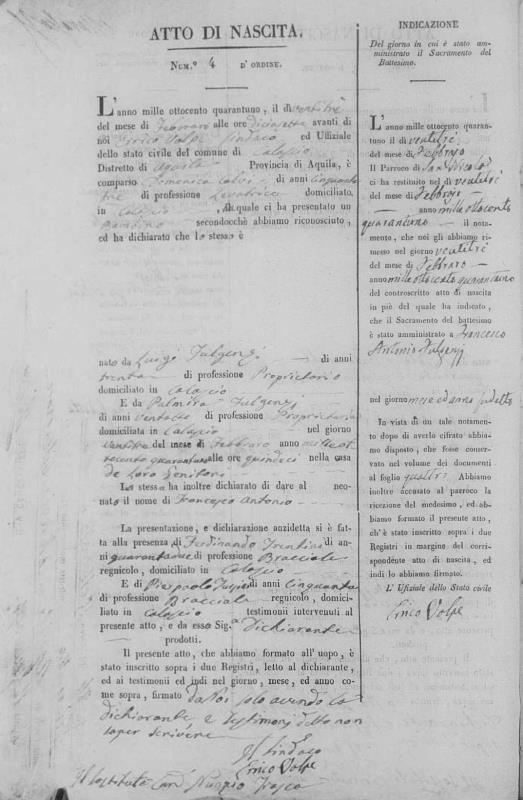 ATTO DI NASCITA.
Num.º 4 D'ORDINE.
L'anno mille ottocento quarantuno, il dì ventitrè
del mese di Febbraro alle ore diciasette avanti di
noi Errico Volpe Sindaco ed Uffiziale
dello stato civile del comune di Calascio
Distretto di Aquila, Provincia di Aquila, è
comparso Domenica di anni cinquanta
tre di professione Levatrice domiciliato,
in Calascio, Al quale ci ha presentato un
bambino secondocchè abbiamo riconosciuto,
ed ha dichiarato che lo stesso è
nato da Luigi Fulgenzj di anni
trenta di professione Proprietario
domiciliato in Calascio
E da Palmira Fulgenzj
di anni ventotto di professione Proprietaria
domiciliata in Calascio nel giorno
ventitre del mese di Febbraro anno mille ot
tocento quarantuno alle ore quindeci nella casa
de Loro Genitori
Lo stessa ha inoltre dichiarato di dare al neo-
nato il nome di Francesco Antonio
La presentazione, e dichiarazione anzidetta si è fat-
ta alla presenza di Ferdinando Trentini di an-
ni quarantanue di professione Bracciale
regnicolo, domiciliato in Calascio
E di Pierpaolo di anni Cinquanta
di professione Bracciale regnicolo, domici-
liato in Calascio testimonii intervenuti al
presente atto, e da esso Sig.ª Dichiarante
prodotti.
Il presente atto, che abbiamo formato all'uopo, è
stato inscritto sopra i due Registri, letto al dichiarante,
ed ai testimonii ed indi nel giorno, mese, ed anno co-
me sopra, firmato da Noi solo avendo la
dichiarante e Testimonj detto non
saper scrivere
Il Sindaco
Errico Volpe
Il Sostituto Canc.
INDICAZIONE
Del giorno in cui è stato am-
ministrato il Sacramento del
Battesimo.
L'anno mille ottocento quaran-
tuno il dì ventitrè
del mese di Febbrajo
Il Parroco di San Nicola
ci ha restituito nel dì ventitrè
del mese di Febbrajo
anno mille ottocento
quarantuno il nota-
mento, che noi gli abbiamo ri-
messo nel giorno ventitrè
del mese di Febbraro
anno mille ottocento quarantuno
del controscritto atto di nascita
in piè del quale ha indicato,
che il Sacramento del battesimo
è stato amministrato a Francesco
Antonio Fulgenzj
nel giorno mese ed anno sudetto
In vista di un tale notamento
dopo di averlo cifrato abbia-
mo disposto, che fosse conser-
vato nel volume dei documenti
al foglio quattro Abbiamo
inoltre accusato al parroco la
ricezione del medesimo, ed ab-
biamo formato il presente atto,
ch'è stato inscritto sopra i due
Registri in margine del corri-
spondente atto di nascita, ed
indi lo abbiamo firmato.
L'Ufiziale dello Stato civile
Errico Volpe